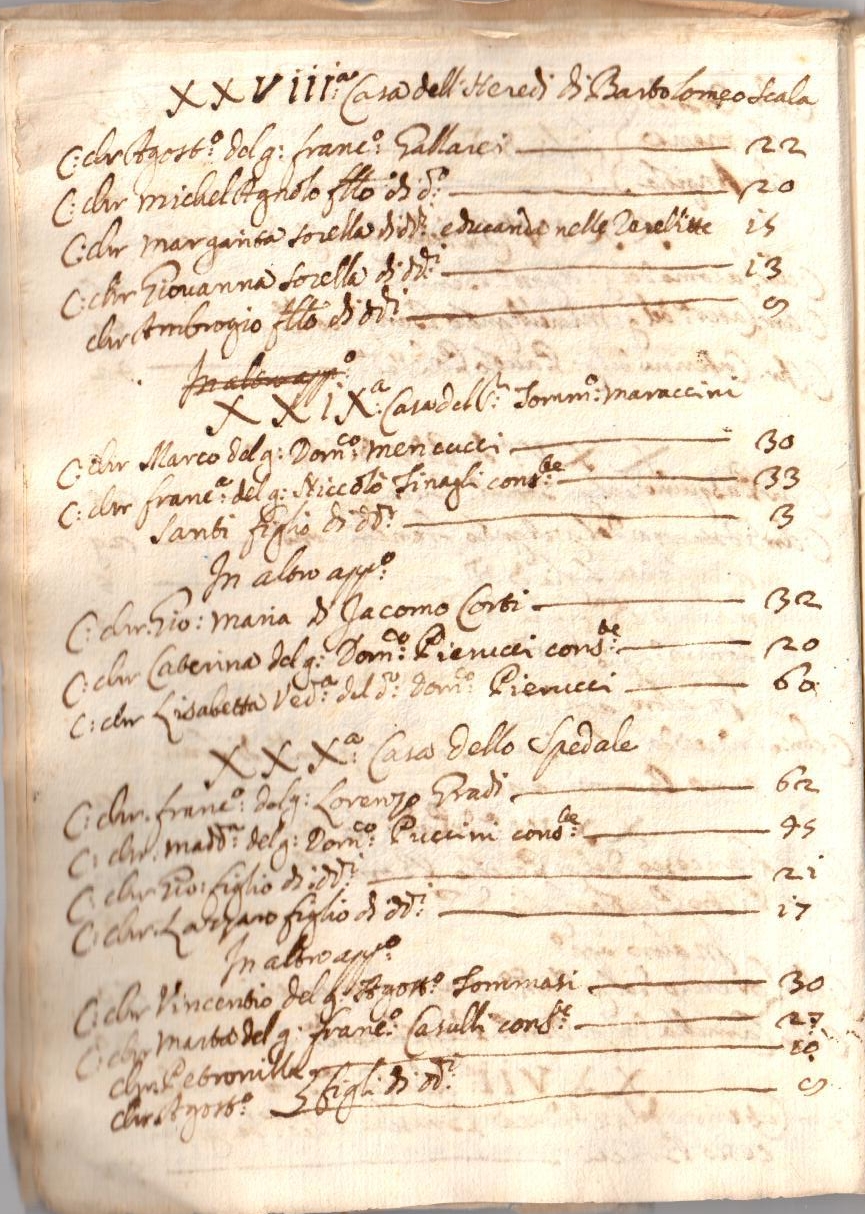 XXVIIIª: Casa dell'Heredi di Bartolomeo Scala
C: chr Agostº: del q: francº: Gallacci — 22
C: chr Michel'Agnolo fllo di dº: — 20
C: chr Margarita sorella di ddi: educanda nelle 15
C: chr Giovanna sorella di ddi: — 13
chr Ambrogio fllo di ddi: — 9
In altro appº:
XXIXª: Casa del Sr: Tommº: Maraccini
C: chr Marco del q: Domco: Mencucci — 30
C: chr francª: del q: Niccolò Tinagli consbe: — 33
Santi figlio di ddi: — 3
In altro appº:
C: chr. Gio: Maria di Jacomo Corti — 32
C: chr Caterina del q: Domco: Pierucci consbe: — 20
C: chr Lisabetta Vedª: del dº: Domco: Pierucci — 60
XXXª: Casa dello Spedale
C: chr. francº: del q: Lorenzo Gradi — 62
C: chr. Maddª: del q: Domco: Puccini consbe: — 45
C: chr Gio: figlio di ddi: — 21
C: chr. Lazzaro figlio di ddi: — 17
In altro appº:
C: chr Vincentio del q: Agostº: Tommasi — 30
C: chr Marta del q: francº: Casulli conste: — 27
chr. Petronilla — 10
chr. Agostº: figli di ddi: — 9